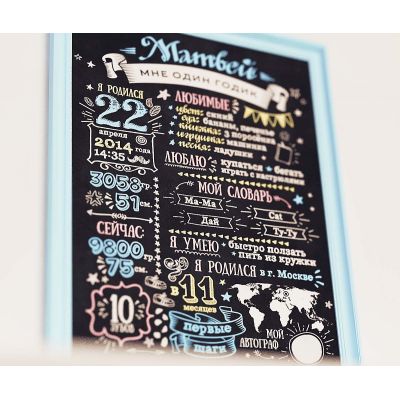 Матвей
МНЕ ОДИН ГОДИК
Я РОДИЛСЯ
22
апреля
2014 года
14:35
3058 гр.
51 см.
СЕЙЧАС:
9800 гр.
75 см.
10
ЗУБОВ
ЛЮБИМЫЕ
цвет: синий
еда: бананы, печенье
книжка: 3 поросёнка
игрушка: машинка
песня: ладушки
ЛЮБЛЮ
купаться • бегать
играть с кастрюлями
МОЙ СЛОВАРЬ
Ма-Ма
Cat
Дай
Ту-Ту
Я УМЕЮ
быстро ползать
пить из кружки
Я РОДИЛСЯ в г. Москве
в 11
месяцев
первые
шаги
МОЙ
АВТОГРАФ